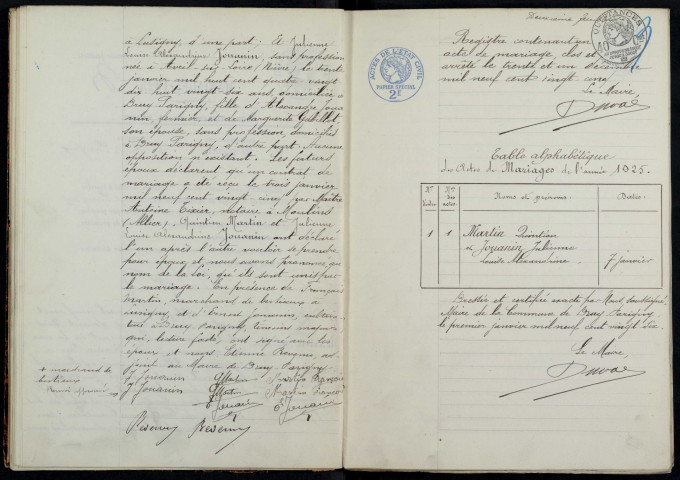 a Lusigny, d'une part; Et Julienne
Louise Alexandrine Jouanin, sans profession
née à Avril sur Loire, Nièvre, le trente
janvier mil huit cent quatre vingt
dix huit, vingt six ans, domiciliée à
Dreuy Parigny, fille d'Alexandre Joua
nin fermier, et de Marguerite
son épouse, sans profession, domiciliés
à Dreuy Parigny, d'autre part. Aucune
opposition n'existant. Les futurs
époux déclarent qu'un contrat de
mariage a été reçu le trois janvier
mil neuf cent vingt cinq par Maître
Antoine Tixier, notaire à Moulins
(Allier). Quintien Martin et Julienne
Louise Alexandrine Jouanin ont déclaré
l'un après l'autre vouloir se prendre
pour époux, et nous avons prononcé au
nom de la Loi, qu'ils sont unis par
le mariage. En présence de François
Martin, marchand de bestiaux à
Lusigny, et d'Ernest Jouanin, cultiva-
témoins majeurs
qui, lecture faite, ont signé avec les
époux et nous, Etienne
joint au Maire de Dreuy-Parigny
+ marchand de
bestiaux
J. Jouanin
Martin
E. Jouanin
ACTES DE L'ÉTAT CIVIL
PAPIER SPÉCIAL
2F
QUITTANCES
Registre contenant un
acte de mariage, clos et
arrêté le trente et un décembre
mil neuf cent vingt cinq
Le Maire,
Duval
Table alphabétique
des Actes de Mariages de l'année 1925.
Noms et prénoms. Dates.
1 1 Martin Quintien
et Jouanin Julienne
Louise Alexandrine 7 janvier
Dressée et certifiée exacte par Nous, soussigné,
Maire de la Commune de Dreuy Parigny
le premier janvier mil neuf cent vingt six.
Le Maire,
Duval